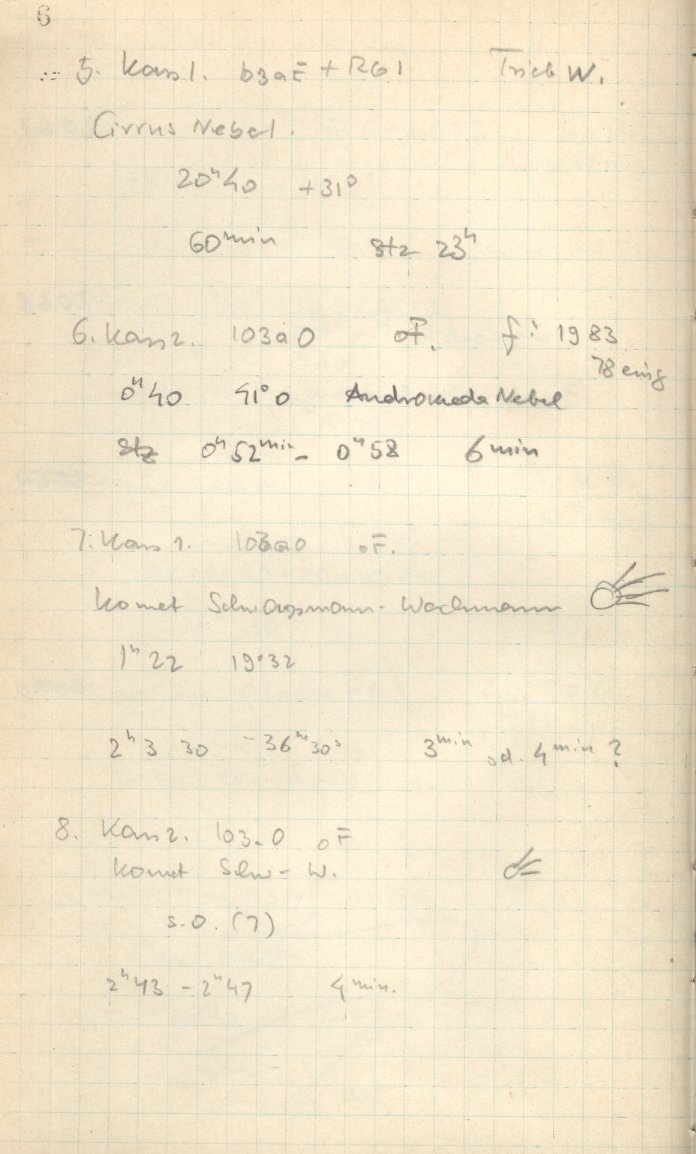 6
5. Kass 1. 103aE + RG1 Trieb W.
Cirrus Nebel.
20ʰ40 +31°
60 min Stz 23ʰ
6. Kass 2. 103a0 oF. f: 1983
78 eing
0ʰ40 41°0 Andromeda Nebel
Stz 0ʰ52ᵐⁱⁿ - 0ʰ58 6 min
7. Kass 1. 103a0 oF.
Komet Schwassmann-Wachmann
1ʰ22 19°32
2ʰ3 30 - 36ᵐ30ˢ 3ᵐⁱⁿ od. 4ᵐⁱⁿ ?
8. Kass 2. 103a0 oF
Komet Schw-W.
s.o. (7)
2ʰ43 - 2ʰ47 4 min.